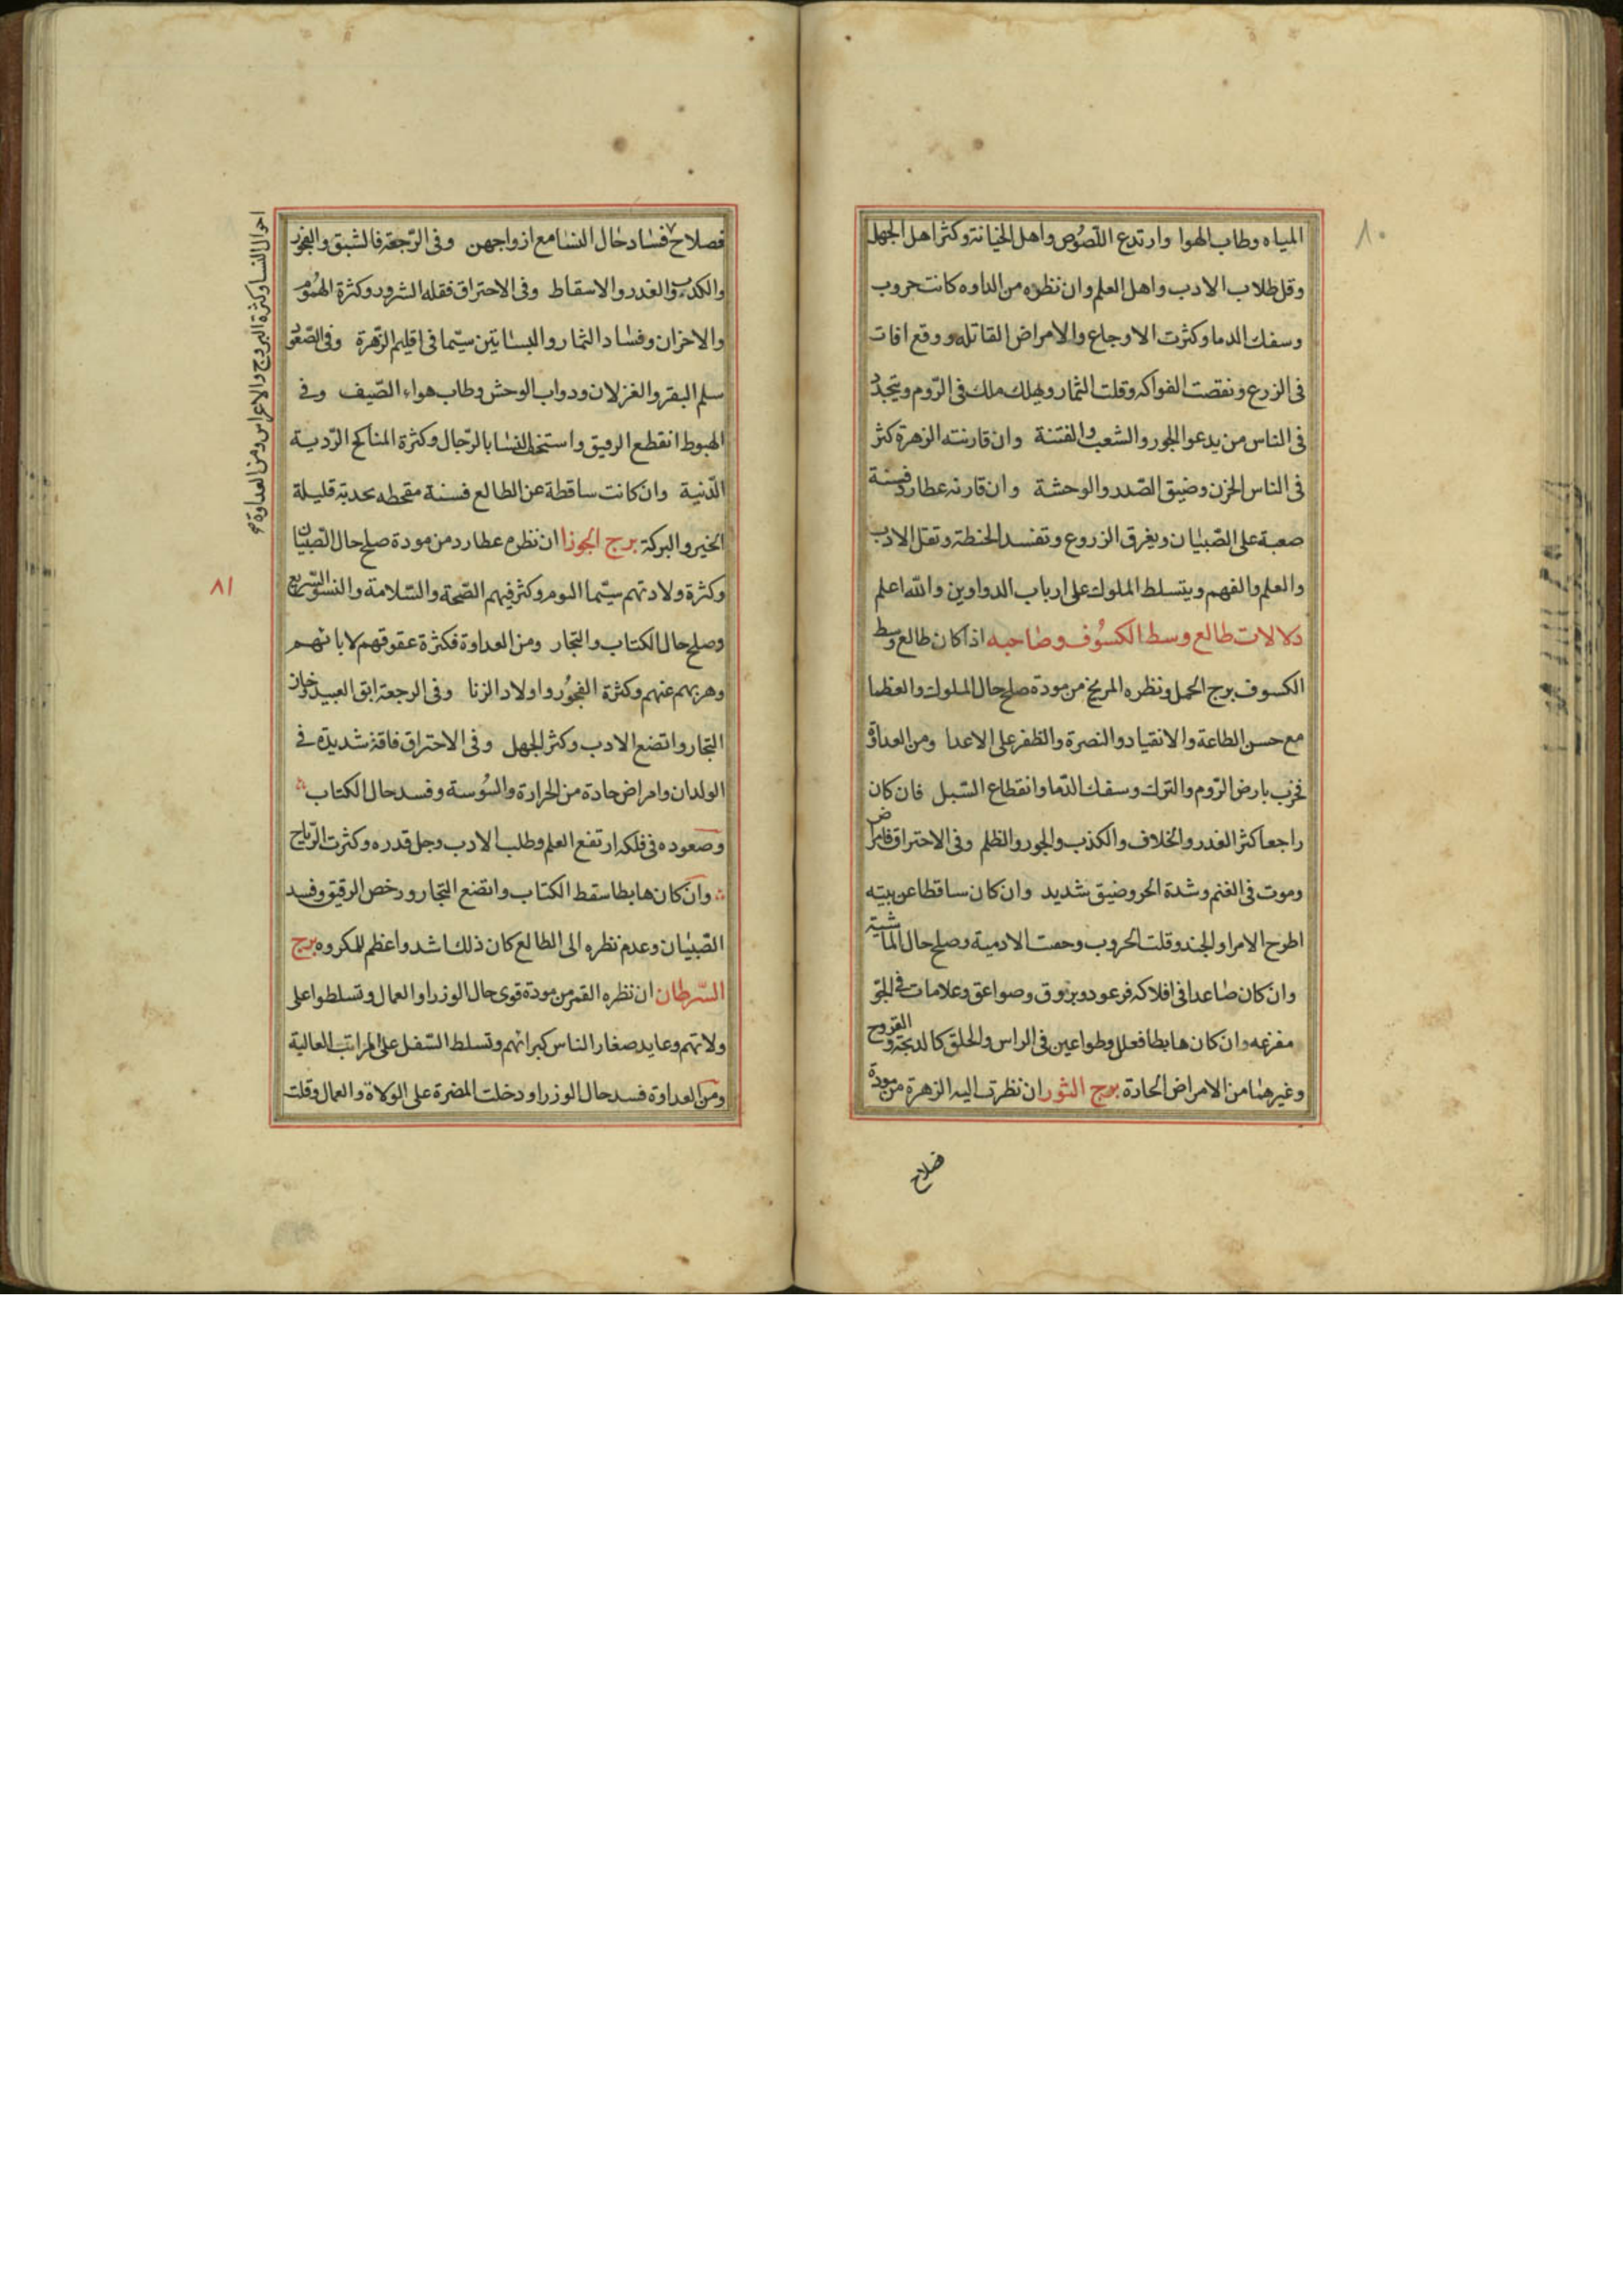 ٨٠
المياه وطاب الهوا وارتدع اللصوص واهل الخيانة وكثر اهل الجهل
وقل طلاب الادب واهل العلم وان نظره من العداوه كانت حروب
وسفك الدما وكثرت الاوجاع والامراض القاتله ووقع افات
فى الزرع ونقصت الفواكه وقلت الثمار ويهلك ملك فى الروم ويتجدد
فى الناس من يدعو الجور والشغب والفتنة وان قارنته الزهرة كثر
فى الناس الحزن وضيق الصدر والوحشة وان قارنه عطارد فسنة
صعبة على الصبيان ويغرق الزروع وتفسد الحنطة وتقل الادب
والعلم والفهم ويتسلط الملوك على ارباب الدواوين والله اعلم
دلالات طالع وسط الكسوف وصاحبه اذا كان طالع وسط
الكسوف برج الحمل ونظره المريخ من مودة صلح حال الملوك والعظما
مع حسن الطاعة والانقياد والنصرة والظفر على الاعدا ومن العداوة
فحرب بارض الروم والترك وسفك الدما وانقطاع السبل فان كان
راجعا كثر الغدر والخلاف والكذب والجور والظلم وفى الاحتراق فامراض
وموت فى الغنم وشدة الحر وضيق شديد وان كان ساقطا عن بيته
اطرح الامرا والجند وقلت الحروب وحمت الادمية وصلح حال الماشية
وان كان صاعدا فى افلاكه فرعود وبروق وصواعق وعلامات فى الجو
مفزعه وان كان هابطا فعلل وطواعين فى الراس والحلق كالدبحة والقروح
وغيرهنا من الامراض الحادة برج الثور ان نظرت اليه الزهرة من مودة
فصلاح
فصلاح فساد حال النسا مع ازواجهن وفى الرجعة فالشبق والفجور
والكدب والغدر والاسقاط وفى الاحتراق فقله السرور وكثرة الهموم
والاحزان وفساد الثمار والبساتين سيما فى اقليم الزهرة وفى الصعود
سلم البقر والغزلان ودواب الوحش وطاب هواء الصيف وفى
الهبوط انقطع الرفيق واستخف النسا بالرجال وكثرة المناكح الردية
الدنية وان كانت ساقطة عن الطالع فسنة مقحطه بحدبة قليلة
الخير والبركة برج الجوزا ان نظره عطارد من مودة صلح حال الصبيان
وكثرة ولادتهم سيما التوم وكثر فيهم الصحة والسلامة والنشو السريع
وصلح حال الكتاب والتجار ومن العداوة فكثرة عقوقهم لابائهم
وهربهم عنهم وكثرة الفجور واولاد الزنا وفى الرجعة ابق العبيد وخان
التجار واتضع الادب وكثر الجهل وفى الاحتراق فاقة شديدة فى
الولدان وامراض حادة من الحرارة والسوسة وفسد حال الكتاب
وصعوده فى فلكه ارتفع العلم وطلب الادب وجل قدره وكثرت الرياح
وان كان هابطا سقط الكتاب واتضع التجار ورخص الرقيق وفسد
الصبيان وعدم نظره الى الطالع كان ذلك اشد واعظم للمكروه برج
السرطان ان نظره القمر من مودة قوى حال الوزرا والعمال وتسلطوا على
ولاتهم وعايد صغار الناس كبرائهم وتسلط السفل على المراتب العالية
ومن العداوة فسد حال الوزرا ودخلت المضرة على الولاة والعمال وقلت
احوال النسا وكثرة التزويج والاعراس ومن العداوة
٨١